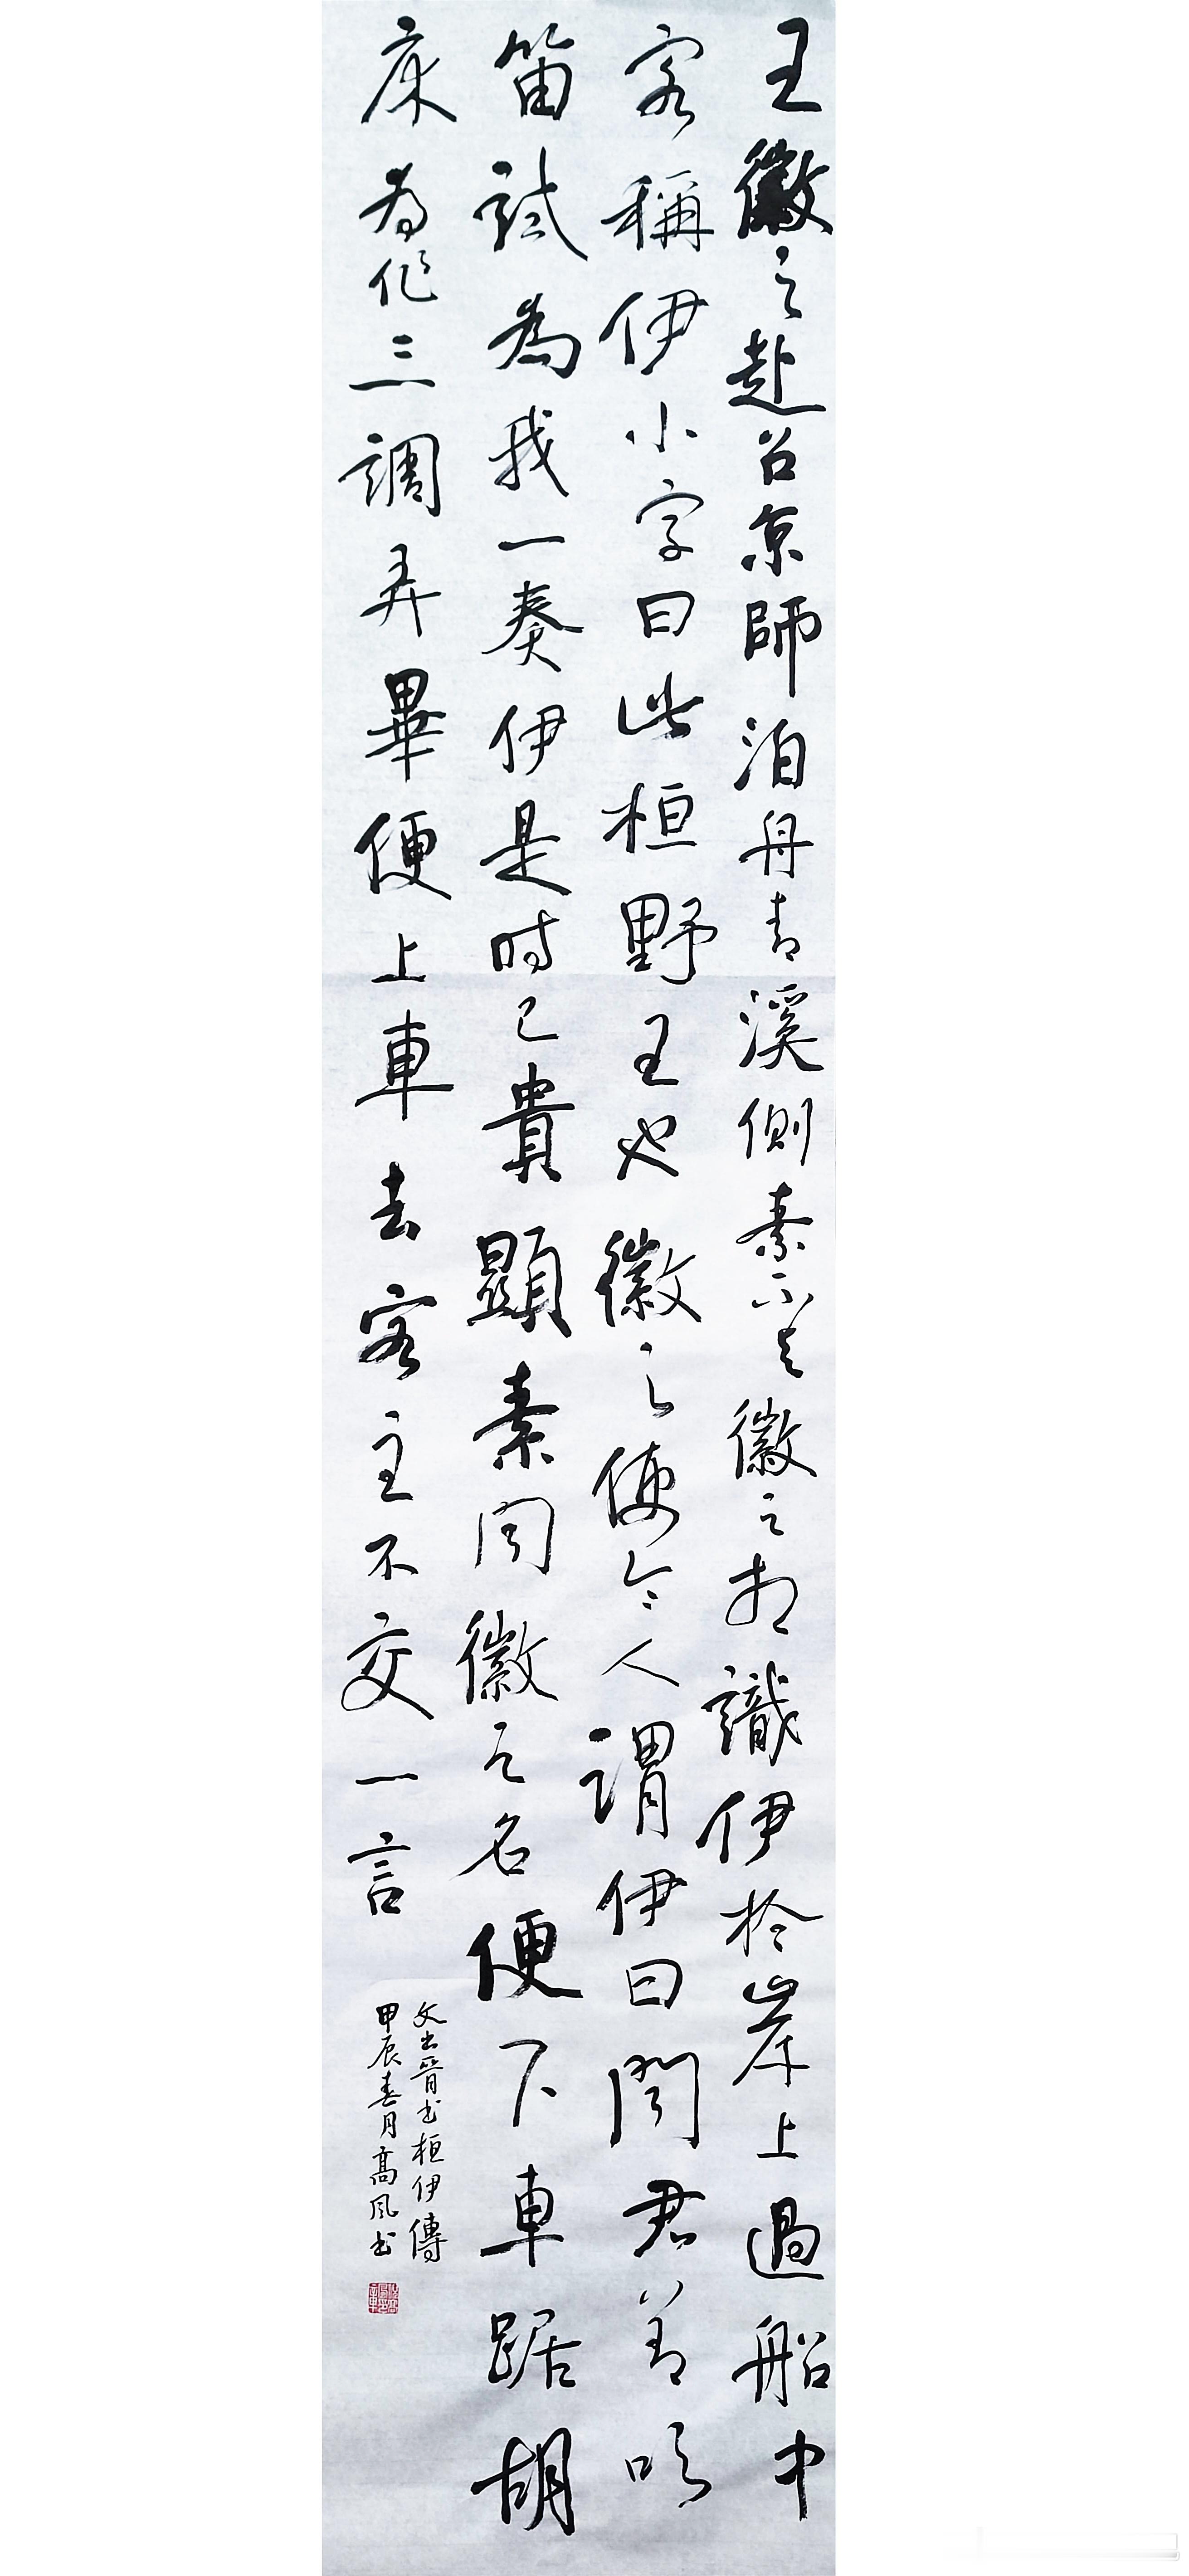 王徽之赴召京師泊舟青溪側素不与徽之相識伊於岸上過船中
客稱伊小字曰此桓野王也徽之便令人謂伊曰聞君善吹
笛試為我一奏伊是時已貴顯素聞徽之名便下車踞胡
床為作三調弄畢便上車去客主不交一言
文出晉书桓伊傳
甲辰春月高风书